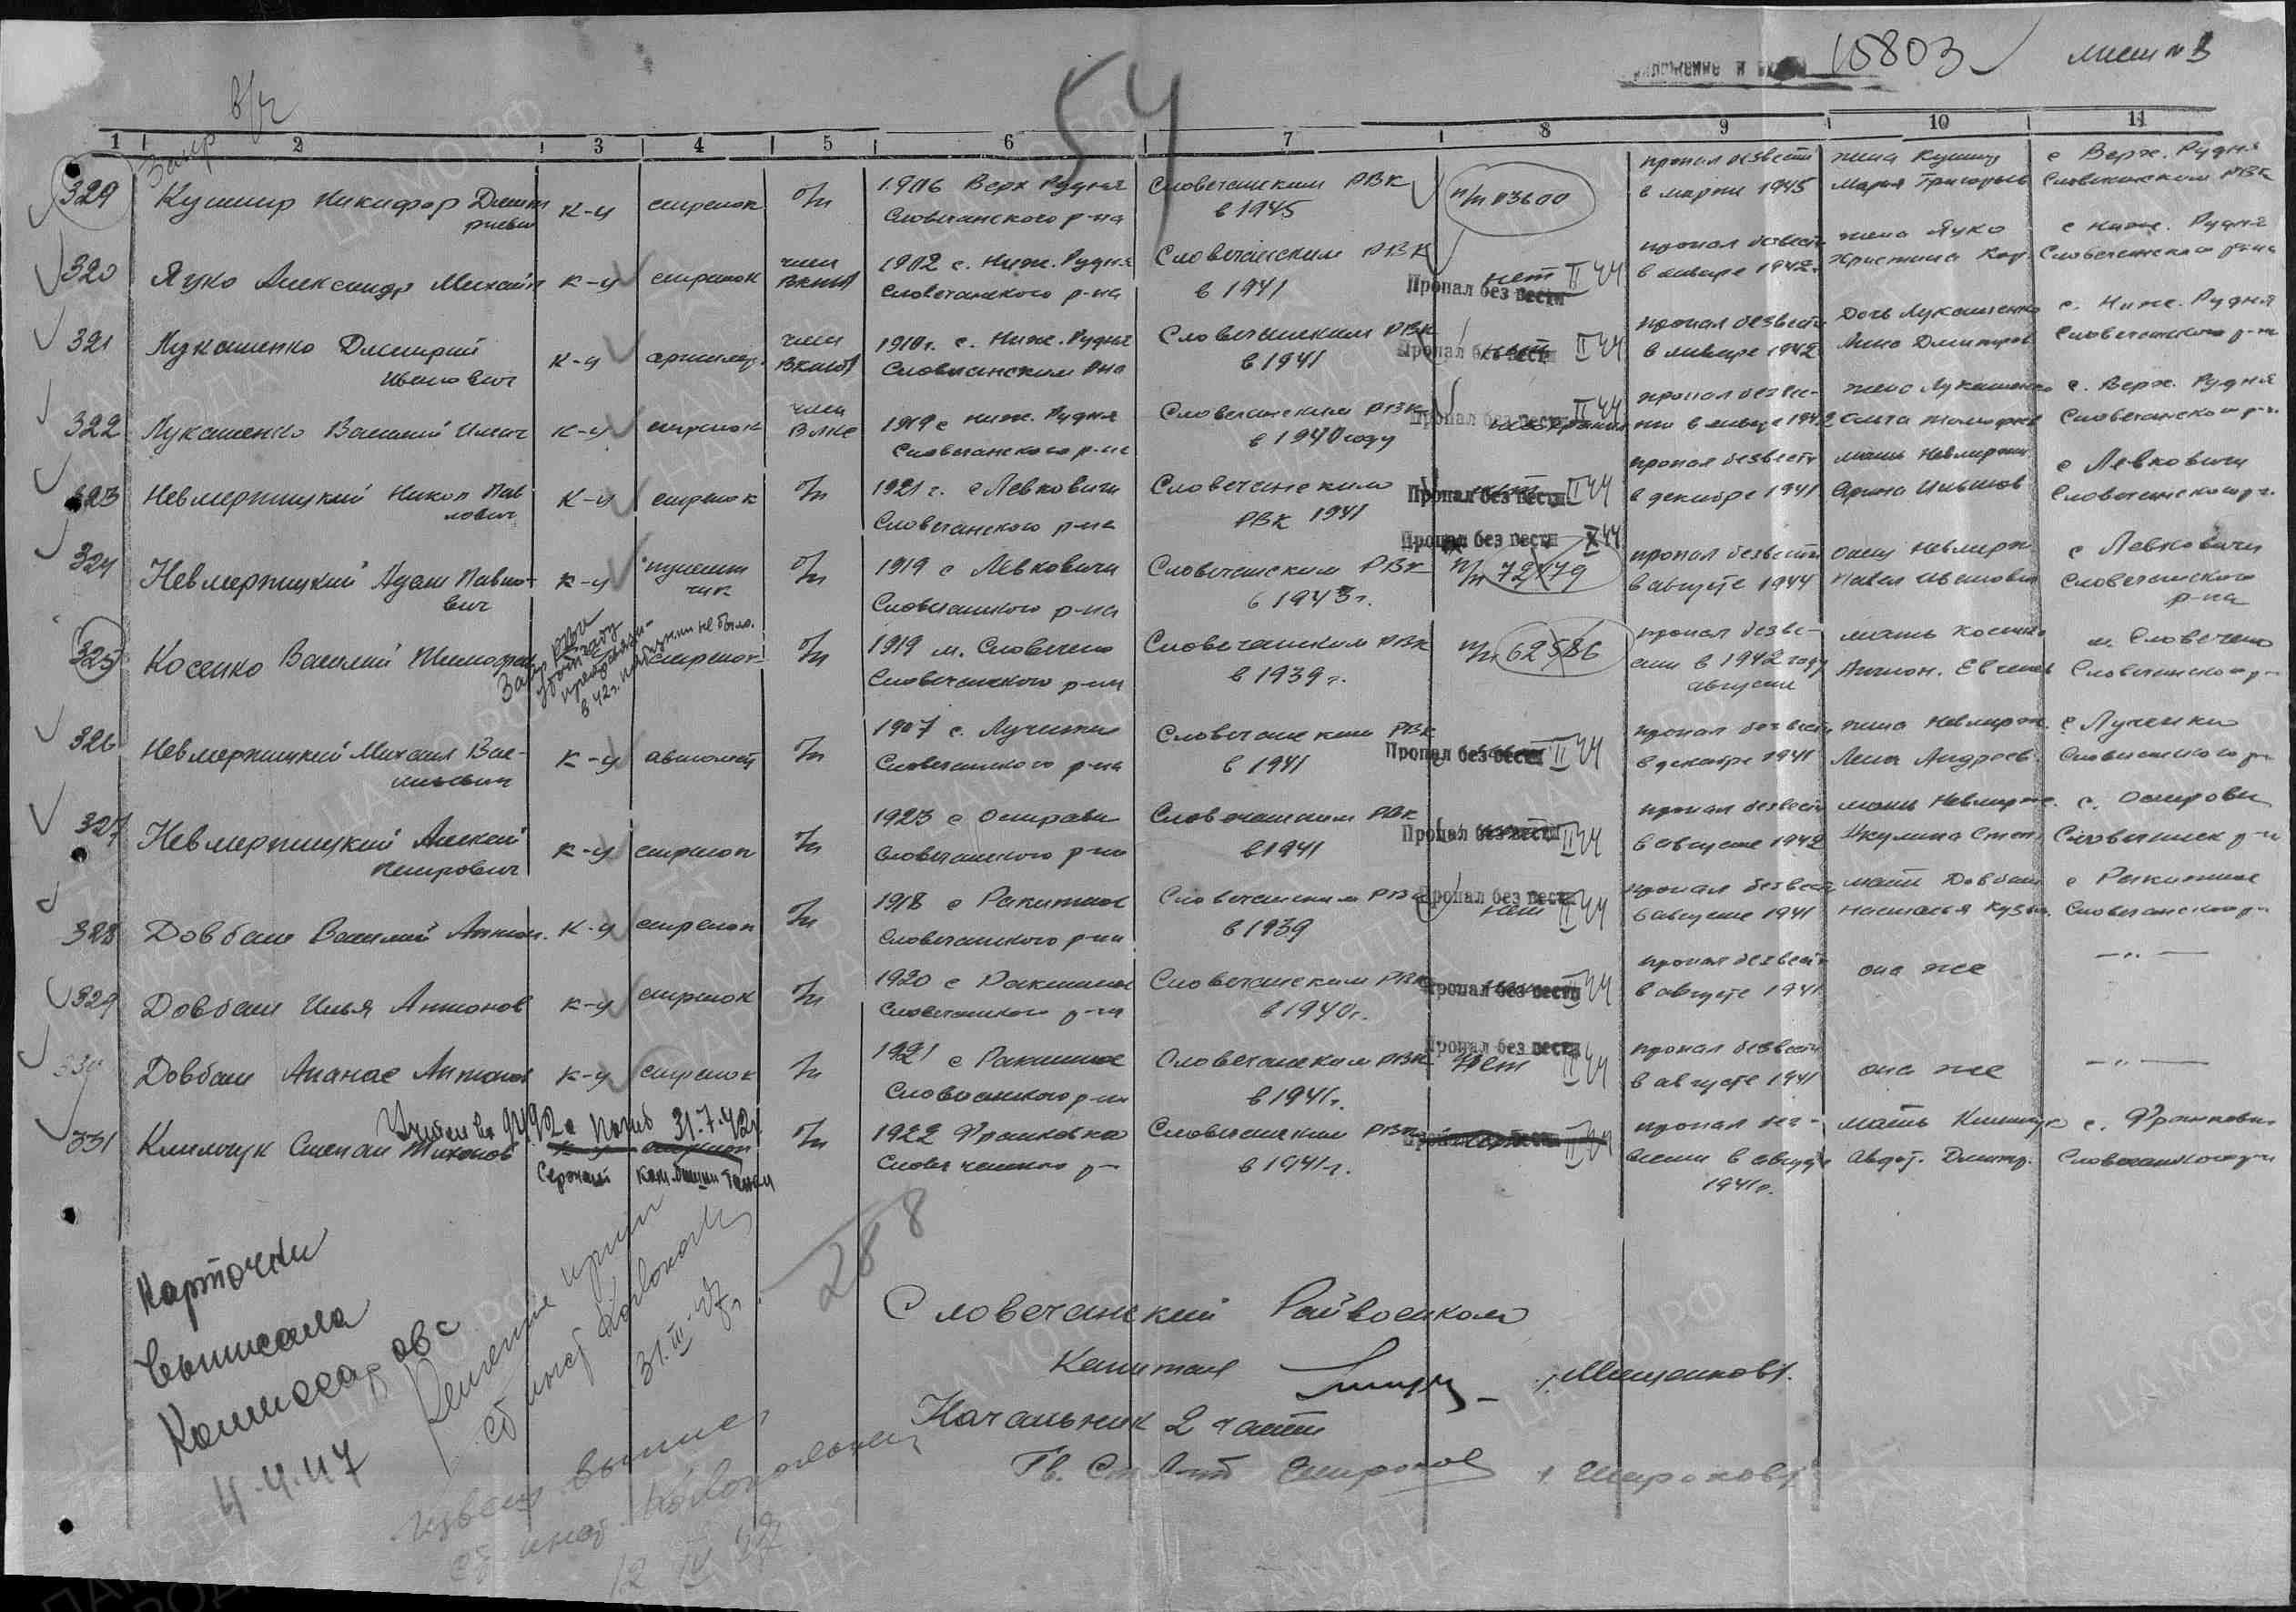 10803
лист № 3
54
в/ч
Запр
1 2 3 4 5 6 7 8 9 10 11
329 Кушнир Никифор Дмит риевич к-ц стрелок б/п 1906 Верх Рудня Словечанского р-на Словечанским РВК в 1945 п/п 03600 пропал безвести в марте 1945 жена Кушнир Мария Григорьев с Верх. Рудня Словечанским РВК
320 Яуко Александр Михайл к-ц стрелок член ВКП(б) 1902 с. Ниж. Рудня Словечанского р-на Словечанским РВК в 1941 нет Пропал без вести II 44 пропал безвести в январе 1942 г. жена Яуко Христина с Ниж. Рудня Словечанского р-на
321 Лукашенко Дмитрий Иванович к-ц артилер. член ВКП(б) 1910г. с. Ниж. Рудня Словечанским Рна Словечанским РВК в 1941 Пропал без вести II 44 пропал безвести в январе 1942 Дочь Лукашенко Анна Дмитров с. Ниж. Рудня Словечанского р-на
322 Лукашенко Василий Ильич к-ц стрелок член ВЛКС 1919 с Ниж. Рудня Словечанского р-на Словечанским РВК в 1940 году Пропал без вести II 44 пропал безвес- ти в январе 1942 жена Лукашенко Ольга с. Верх. Рудня Словечанского р-
323 Невмержицкий Никол Пав лович к-ц стрелок б/п 1921 г. с Левковичи Словечанского р-на Словечанским РВК 1941 Пропал без вести II 44 пропал безвести в декабре 1941 мать Невмержи Арина Ильинов с Левковичи Словечанского р-
324 Невмержицкий Адам Павло- вич к-ц пулемет чик б/п 1919 с Левковичи Словечанского р-на Словечанским РВК в 1943 г. Пропал без вести X 44 п/п 72179 пропал безвести в августе 1944 отец Невмерж. Павел Иванович с Левковичи Словечанского р-на
325 Косенко Василий Тимофеев Запр РВК в 42 г. не было. стрелок б/п 1919 м. Словечно Словечанского р-на Словечанским РВК в 1939 г. п/п 62586 пропал безве- сти в 1942 году августе мать Косенко Антон. Евгеньев м. Словечно Словечанского р-
326 Невмержицкий Михаил Вас- ильевич к-ц автомат б/п 1907 с. Лученки Словечанского р-на Словечанским РВК в 1941 Пропал без вести II 44 пропал безвести в декабре 1941 жена Невмерж. Лена Андреев. с Лученки Словечанского р-
327 Невмержицкий Алексей Петрович к-ц стрелок б/п 1923 с Острови Словечанского р-на Словечанским РВК в 1941 Пропал без вести II 44 пропал безвести в августе 1942 мать Невмерж. Акулина Степ. с. Острови Словечанск р-н
328 Довбаш Василий Антон. к-ц стрелок б/п 1918 с Ракитное Словечанского р-на Словечанским РВК в 1939 Пропал без вести нет II 44 пропал безвести в августе 1941 мать Довбаш Наталья Кузьм. с Ракитное Словечанского р-
329 Довбаш Илья Антонов к-ц стрелок б/п 1920 с Ракитное Словечанского р-на Словечанским РВК в 1940 г. Пропал без вести II 44 пропал безвести в августе 1941 она же —„—
330 Довбаш Ананас Антонов к-ц стрелок б/п 1921 с Ракитное Словечанского р-на Словечанским РВК в 1941 г. Пропал без вести нет II 44 пропал безвести в августе 1941 она же —„—
331 Климчук Степан Тихонов Учтен вх 94902с Погиб 31.7.42г к-ц стрелок Сержант ком. башни танка б/п 1922 Франковка Словечанского р- Словечанским РВК в 1941 г. Пропал без вести II 44 пропал без- вести в августе 1941 г. мать Климчук Авдот. Дмитр. с. Франковка Словечанского р-н
288
Карточки
выписала
Комиссарова
4.4.47
31.III.47г.
Извещ выпис
ст инст. Колоколова
12 IV 47
Словечанский Райвоенком
Капитан /Мищенков/.
Начальник 2 части
Гв. Ст Л-нт Широков / Широков/